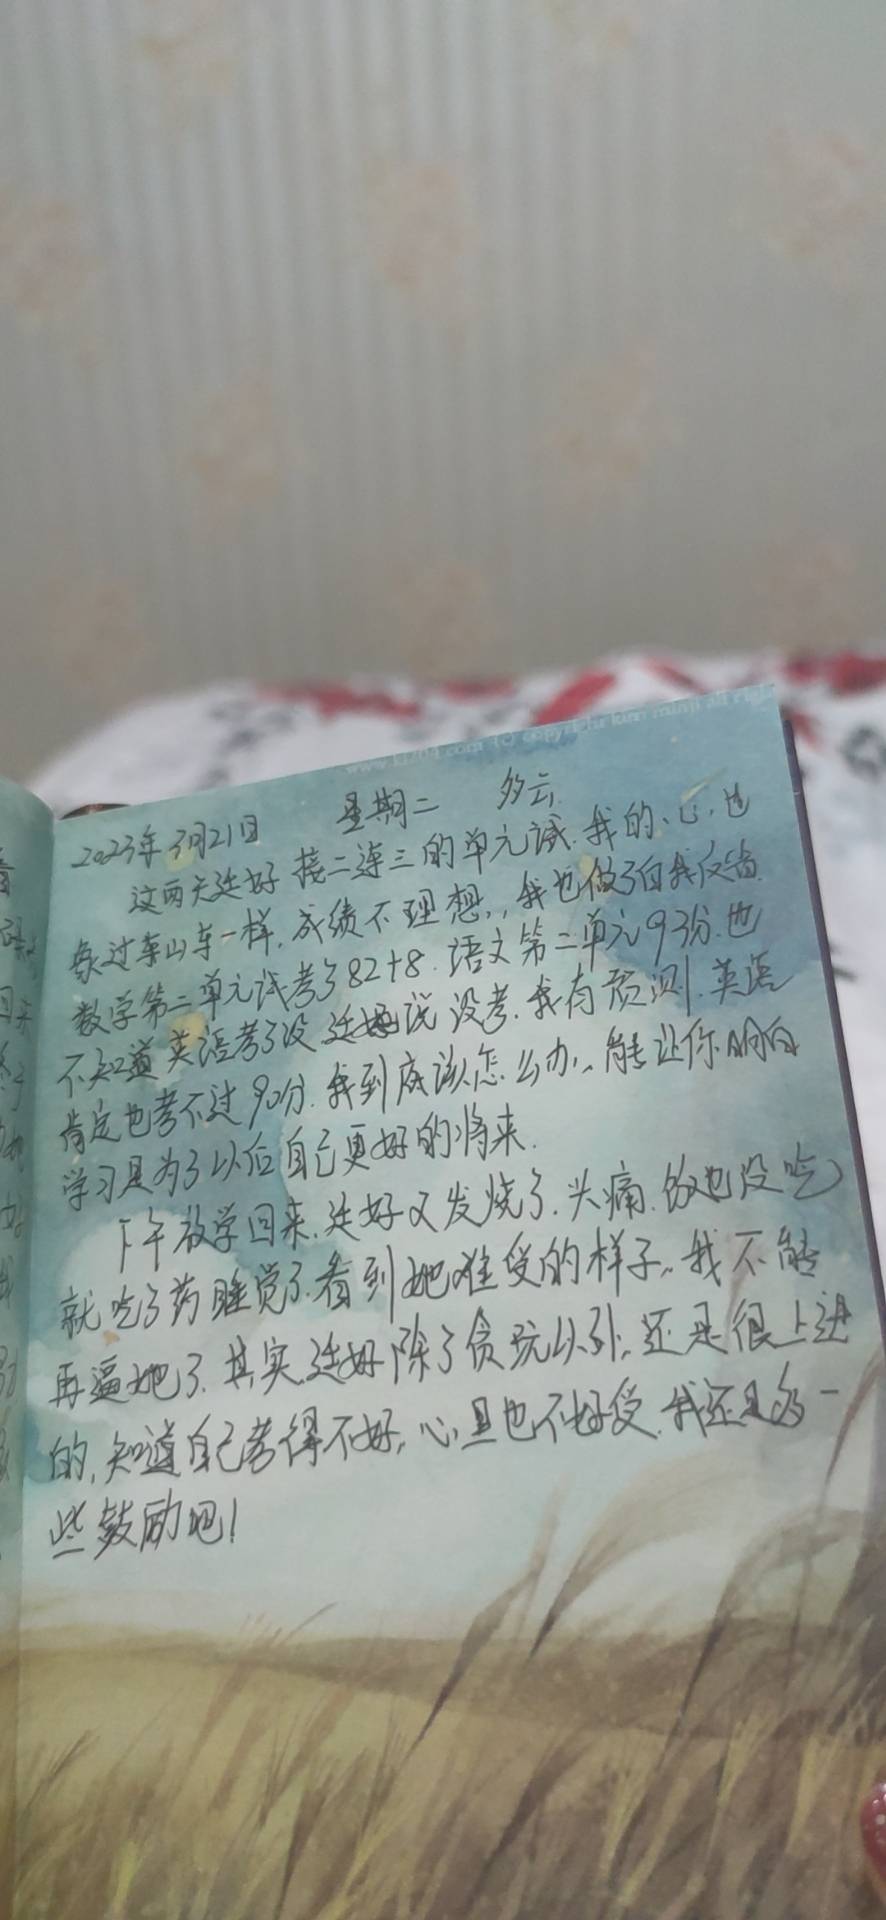 www.kizm.com (c) copyright kim minji all right
2023年3月21日 星期二 多云
这两天廷好接二连三的单元试.我的心也
象过车山车一样.成绩不理想,我也做了自我反省.
数学第二单元试考了82+8.语文第二单元93分.也
不知道英语考了没 廷好说没考.我有预测.英语
肯定也考不过90分.我到底该怎么办,能让你明白
学习是为了以后自己更好的将来.
下午放学回来.廷好又发烧了.头痛.饭也没吃
就吃了药睡觉了.看到她难受的样子,我不能
再逼她了.其实廷好除了贪玩以外,还是很上进
的,知道自己考得不好,心里也不好受.我还是多一
些鼓励吧!